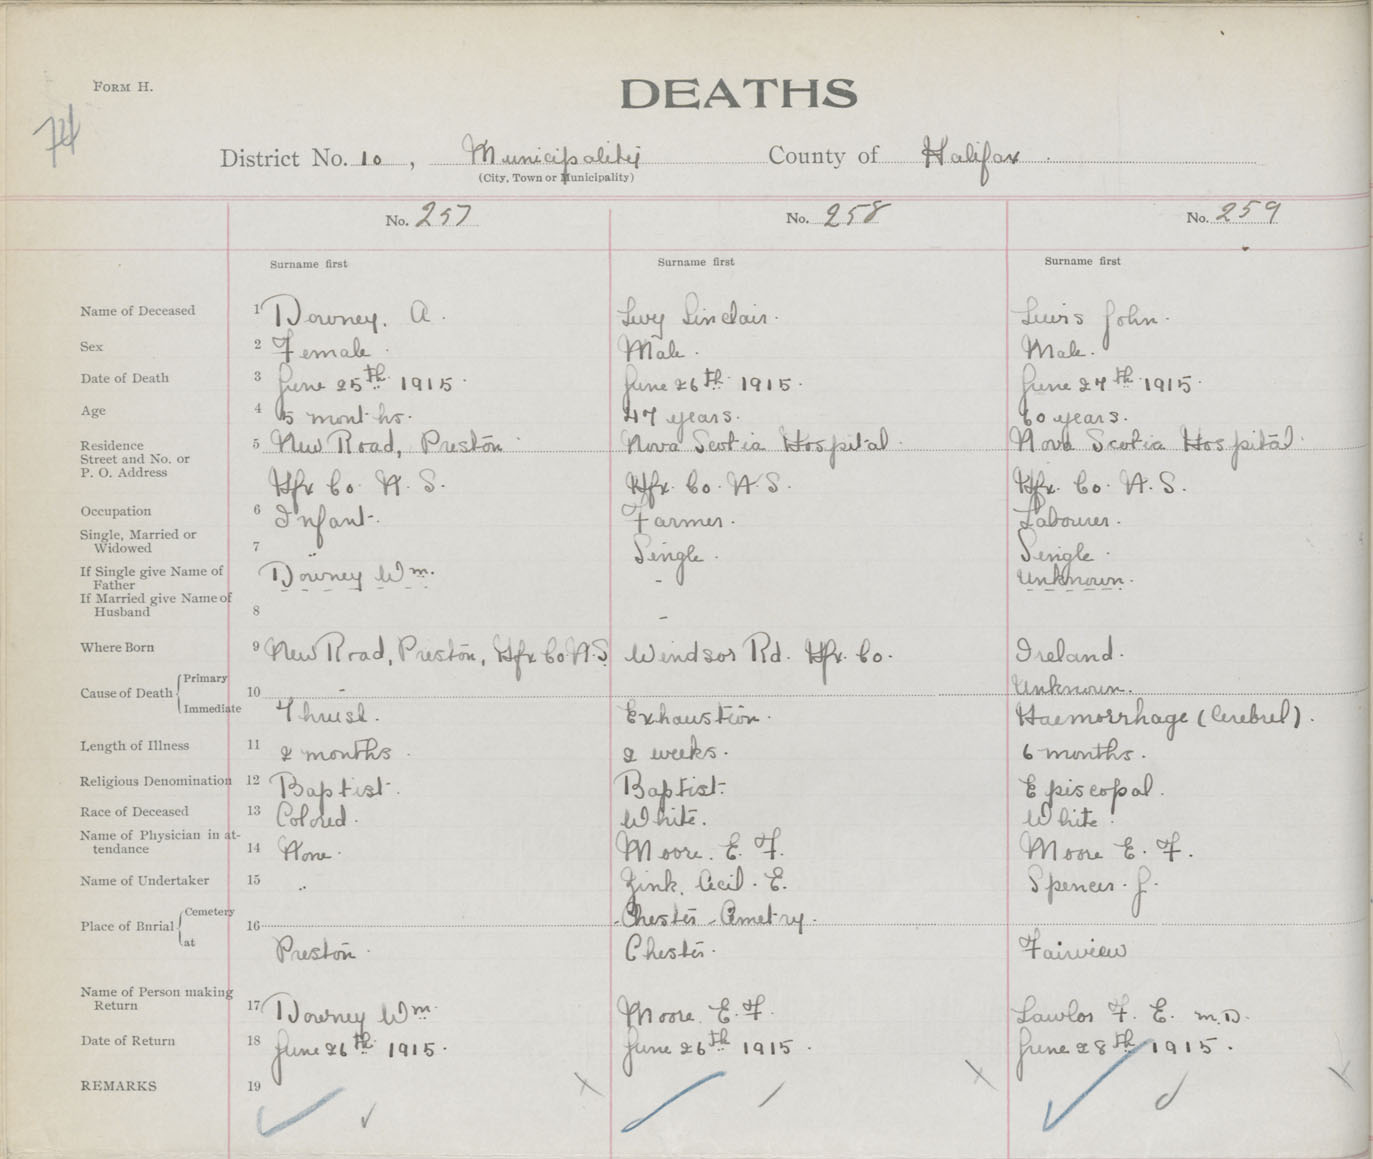 FORM H.
DEATHS
74
District No. 10, Municipality County of Halifax
(City, Town or Municipality)
No. 257 No. 258 No. 259
Surname first Surname first Surname first
Name of Deceased 1 Downey, A. Levy Sinclair. Lewis John.
Sex 2 Female. Male. Male.
Date of Death 3 June 25th 1915. June 26th 1915. June 27th 1915.
Age 4 5 months. 47 years. 60 years.
Residence 5 New Road, Preston Nova Scotia Hospital. Nova Scotia Hospital.
Street and No. or
P. O. Address Hfx Co. N. S. Hfx. Co. N. S. Hfx. Co. N. S.
Occupation 6 Infant. Farmer. Labourer.
Single, Married or
Widowed 7 " Single. Single.
If Single give Name of
Father Downey Wm. - Unknown.
If Married give Name of
Husband 8 -
Where Born 9 New Road, Preston, Hfx Co N.S. Windsor Rd. Hfx. Co. Ireland.
Cause of Death Primary 10 - Unknown.
Immediate Thrush. Exhaustion. Haemorrhage (Cerebrel).
Length of Illness 11 2 months. 2 weeks. 6 months.
Religious Denomination 12 Baptist. Baptist. Episcopal.
Race of Deceased 13 Colored. White. White.
Name of Physician in at-
tendance 14 None. Moore. E. F. Moore E. F.
Name of Undertaker 15 " Zink, Cecil. E. Spencer. J.
Place of Burial Cemetery 16 Chester Cemetry.
at Preston. Chester. Fairview
Name of Person making
Return 17 Downey Wm. Moore. E. F. Lawlor F. E. M.D.
Date of Return 18 June 26th 1915. June 26th 1915. June 28th 1915.
REMARKS 19